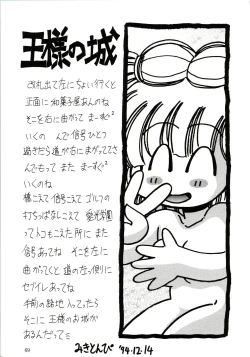 王様の城
改札出て左にちょい行くと
正面に和菓子屋あんのね
そこを右に曲がって まーすぐ
いくの んで信号ひとつ
過ぎたら道が右にまがってさ
んでもって また まーすぐ
いくのね
橋こえて 信号こえて ゴルフの
打ちっぱなしこえて 愛光学園
ってトコもこえた所に また
信号あってね そこを左に
曲がってくと 道の左っ側に
セブイレあってね
手前の路地入ってったら
そこに 王様のお城が
あるんだって
みきとんび '94.12.14
69